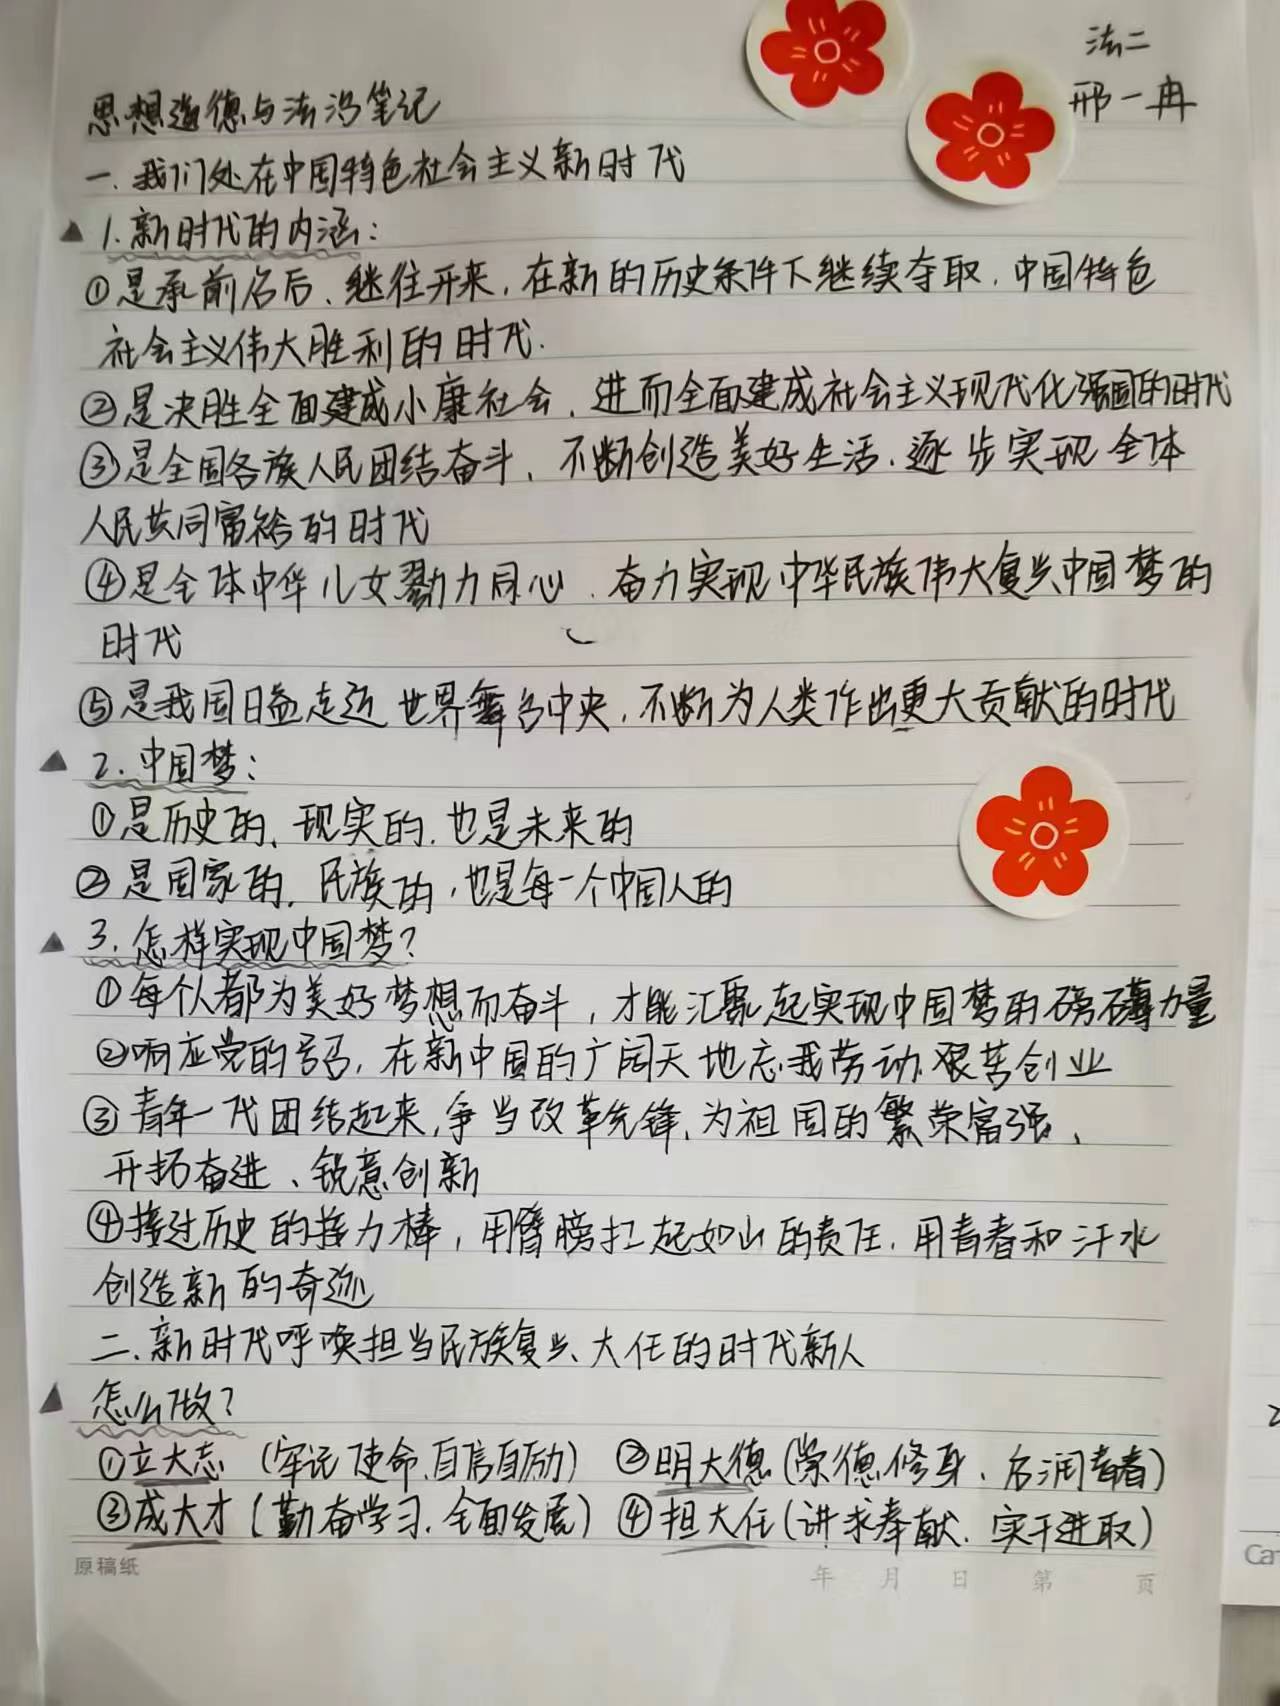 法二
邢一冉
思想道德与法治笔记
一.我们处在中国特色社会主义新时代
▲ 1.新时代的内涵:
①是承前启后、继往开来,在新的历史条件下继续夺取.中国特色
社会主义伟大胜利的时代.
②是决胜全面建成小康社会、进而全面建成社会主义现代化强国的时代
③是全国各族人民团结奋斗、不断创造美好生活、逐步实现全体
人民共同富裕的时代
④是全体中华儿女勠力同心、奋力实现中华民族伟大复兴中国梦的
时代
⑤是我国日益走近世界舞台中央,不断为人类作出更大贡献的时代
▲ 2.中国梦:
①是历史的、现实的.也是未来的
②是国家的.民族的,也是每一个中国人的
▲ 3.怎样实现中国梦?
①每个人都为美好梦想而奋斗,才能汇聚起实现中国梦的磅礴力量
②响应党的号召,在新中国的广阔天地忘我劳动.艰苦创业
③青年一代团结起来,争当改革先锋,为祖国的繁荣富强、
开拓奋进、锐意创新
④接过历史的接力棒,用臂膀扛起如山的责任.用青春和汗水
创造新的奇迹
二、新时代呼唤担当民族复兴大任的时代新人
▲ 怎么做?
①立大志 (牢记使命.自信自励) ②明大德(崇德修身、启润青春)
③成大才(勤奋学习.全面发展) ④担大任(讲求奉献.实干进取)
原稿纸 年 月 日 第 页
Ca